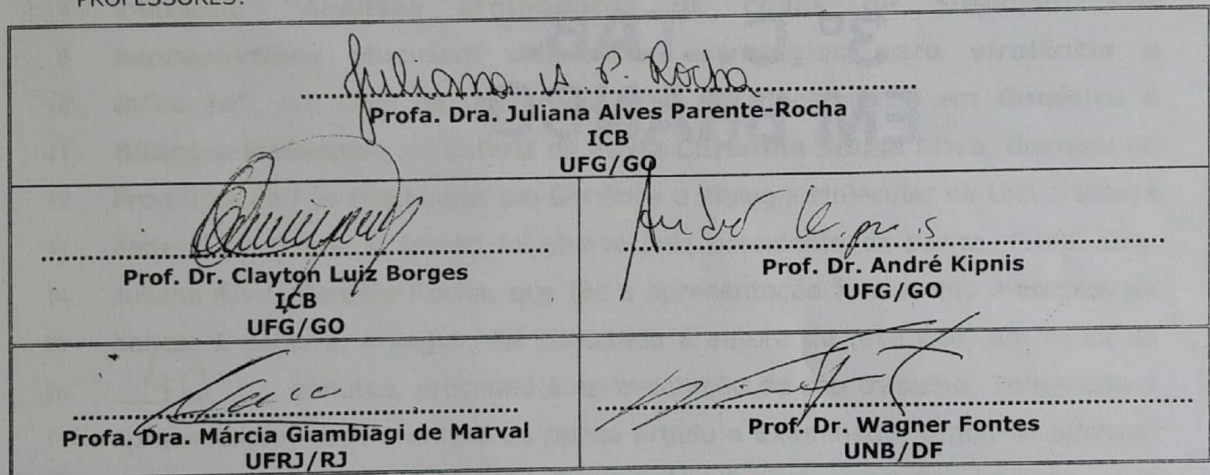 PROFESSORES:
Juliana A. P. Rocha
Profa. Dra. Juliana Alves Parente-Rocha
ICB
UFG/GO
Prof. Dr. Clayton Luiz Borges
ICB
UFG/GO
André Kipnis
Prof. Dr. André Kipnis
UFG/GO
Profa. Dra. Márcia Giambiagi de Marval
UFRJ/RJ
Prof. Dr. Wagner Fontes
UNB/DF